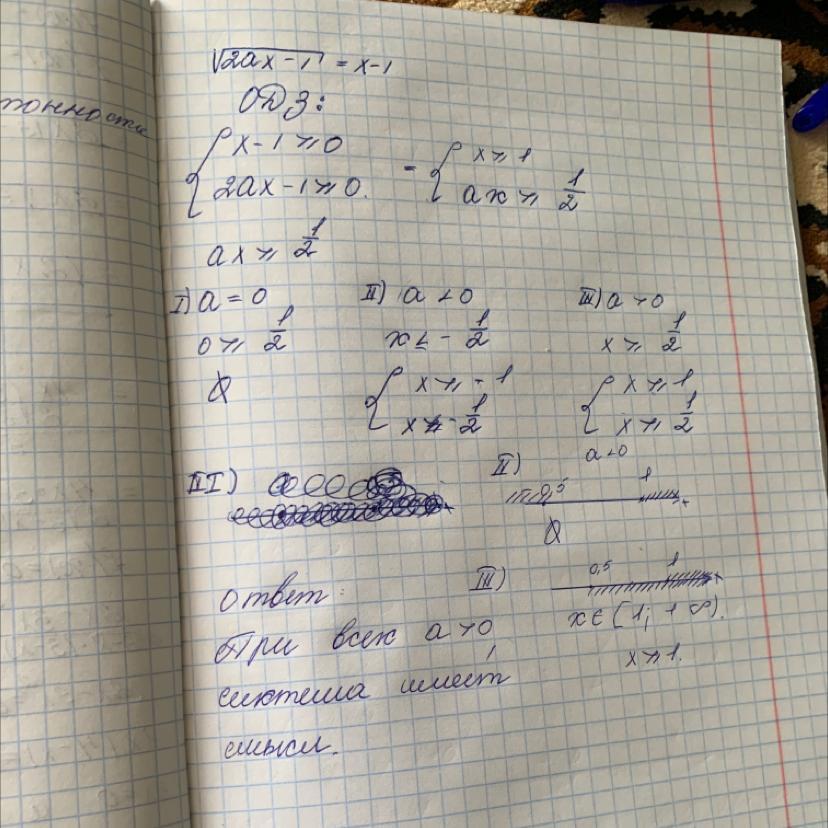 тонности
√2ax-1 = x-1
ОДЗ:
{ x-1 ⩾ 0
2ax-1 ⩾ 0.
= { x ⩾ 1
ax ⩾ 1/2
ax ⩾ 1/2
I) a = 0
0 ⩾ 1/2
∅
II) a < 0
x ⩽ - 1/2
{ x ⩾ - 1
x ⩽ - 1/2
III) a > 0
x ⩾ 1/2
{ x ⩾ 1
x ⩾ 1/2
III)
II) a < 0
0,5 1
∅
III) 0,5 1
x ∈ [1; +∞).
x ⩾ 1.
ответ:
При всех a > 0,
система имеет
смысл.